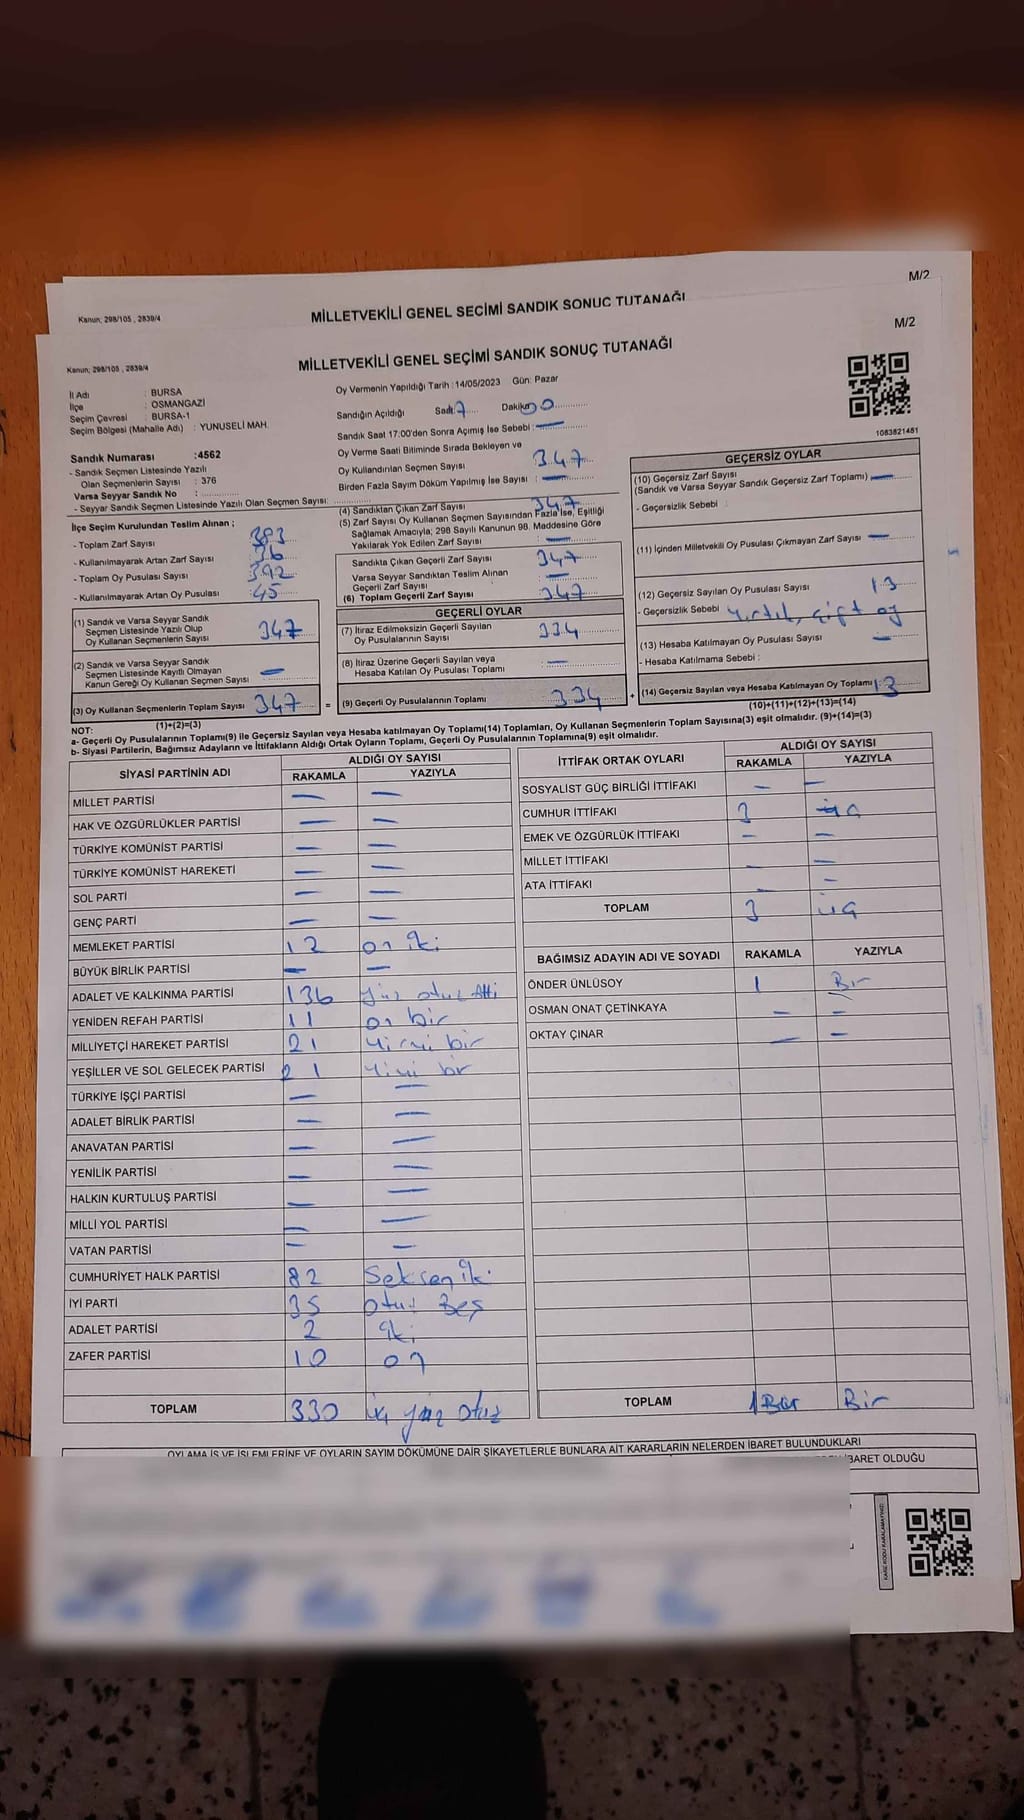 M/2
Kanun; 298/105 , 2839/4
MİLLETVEKİLİ GENEL SEÇİMİ SANDIK SONUÇ TUTANAĞI
M/2
Kanun; 298/105 , 2839/4
MİLLETVEKİLİ GENEL SEÇİMİ SANDIK SONUÇ TUTANAĞI
İl Adı : BURSA
İlçe : OSMANGAZİ
Seçim Çevresi : BURSA-1
Seçim Bölgesi (Mahalle Adı) : YUNUSELİ MAH.
Sandık Numarası :4562
- Sandık Seçmen Listesinde Yazılı
Olan Seçmenlerin Sayısı : 376
Varsa Seyyar Sandık No :
- Seyyar Sandık Seçmen Listesinde Yazılı Olan Seçmen Sayısı:
Oy Vermenin Yapıldığı Tarih :14/05/2023 Gün: Pazar
Sandığın Açıldığı Saat: 7 Dakika: 00
Sandık Saat 17:00'den Sonra Açılmış İse Sebebi : —
Oy Verme Saati Bitiminde Sırada Bekleyen ve
Oy Kullandırılan Seçmen Sayısı 347
Birden Fazla Sayım Döküm Yapılmış İse Sayısı : —
1083821481
İlçe Seçim Kurulundan Teslim Alınan ;
- Toplam Zarf Sayısı 383
- Kullanılmayarak Artan Zarf Sayısı 36
- Toplam Oy Pusulası Sayısı 392
- Kullanılmayarak Artan Oy Pusulası 45
(1) Sandık ve Varsa Seyyar Sandık
Seçmen Listesinde Yazılı Olup
Oy Kullanan Seçmenlerin Sayısı 347
(2) Sandık ve Varsa Seyyar Sandık
Seçmen Listesinde Kayıtlı Olmayan
Kanun Gereği Oy Kullanan Seçmen Sayısı —
(3) Oy Kullanan Seçmenlerin Toplam Sayısı 347
(1)+(2)=(3)
(4) Sandıktan Çıkan Zarf Sayısı 347
(5) Zarf Sayısı Oy Kullanan Seçmen Sayısından Fazla İse, Eşitliği
Sağlamak Amacıyla; 298 Sayılı Kanunun 98. Maddesine Göre
Yakılarak Yok Edilen Zarf Sayısı : —
Sandıkta Çıkan Geçerli Zarf Sayısı 347
Varsa Seyyar Sandıktan Teslim Alınan
Geçerli Zarf Sayısı : —
(6) Toplam Geçerli Zarf Sayısı 347
GEÇERLİ OYLAR
(7) İtiraz Edilmeksizin Geçerli Sayılan
Oy Pusulalarının Sayısı 334
(8) İtiraz Üzerine Geçerli Sayılan veya
Hesaba Katılan Oy Pusulası Toplamı : —
= (9) Geçerli Oy Pusulalarının Toplamı 334 +
GEÇERSİZ OYLAR
(10) Geçersiz Zarf Sayısı
(Sandık ve Varsa Seyyar Sandık Geçersiz Zarf Toplamı) —
- Geçersizlik Sebebi :
(11) İçinden Milletvekili Oy Pusulası Çıkmayan Zarf Sayısı —
(12) Geçersiz Sayılan Oy Pusulası Sayısı 13
- Geçersizlik Sebebi Yırtık, çift oy
(13) Hesaba Katılmayan Oy Pusulası Sayısı —
- Hesaba Katılmama Sebebi :
(14) Geçersiz Sayılan veya Hesaba Katılmayan Oy Toplamı 13
(10)+(11)+(12)+(13)=(14)
NOT:
a- Geçerli Oy Pusulalarının Toplamı(9) ile Geçersiz Sayılan veya Hesaba katılmayan Oy Toplamı(14) Toplamları, Oy Kullanan Seçmenlerin Toplam Sayısına(3) eşit olmalıdır. (9)+(14)=(3)
b- Siyasi Partilerin, Bağımsız Adayların ve İttifakların Aldığı Ortak Oyların Toplamı, Geçerli Oy Pusulalarının Toplamına(9) eşit olmalıdır.
SİYASİ PARTİNİN ADI ALDIĞI OY SAYISI
RAKAMLA YAZIYLA
MİLLET PARTİSİ — —
HAK VE ÖZGÜRLÜKLER PARTİSİ — —
TÜRKİYE KOMÜNİST PARTİSİ — —
TÜRKİYE KOMÜNİST HAREKETİ — —
SOL PARTİ — —
GENÇ PARTİ — —
MEMLEKET PARTİSİ 12 on iki
BÜYÜK BİRLİK PARTİSİ — —
ADALET VE KALKINMA PARTİSİ 136 yüz otuz Altı
YENİDEN REFAH PARTİSİ 11 on bir
MİLLİYETÇİ HAREKET PARTİSİ 21 yirmi bir
YEŞİLLER VE SOL GELECEK PARTİSİ 21 yirmi bir
TÜRKİYE İŞÇİ PARTİSİ — —
ADALET BİRLİK PARTİSİ — —
ANAVATAN PARTİSİ — —
YENİLİK PARTİSİ — —
HALKIN KURTULUŞ PARTİSİ — —
MİLLİ YOL PARTİSİ — —
VATAN PARTİSİ — —
CUMHURİYET HALK PARTİSİ 82 Seksen iki
İYİ PARTİ 35 otuz Beş
ADALET PARTİSİ 2 iki
ZAFER PARTİSİ 10 on
TOPLAM 330 yüz otuz
İTTİFAK ORTAK OYLARI ALDIĞI OY SAYISI
RAKAMLA YAZIYLA
SOSYALİST GÜÇ BİRLİĞİ İTTİFAKI — —
CUMHUR İTTİFAKI 3 üç
EMEK VE ÖZGÜRLÜK İTTİFAKI — —
MİLLET İTTİFAKI — —
ATA İTTİFAKI — —
TOPLAM 3 üç
BAĞIMSIZ ADAYIN ADI VE SOYADI RAKAMLA YAZIYLA
ÖNDER ÜNLÜSOY 1 Bir
OSMAN ONAT ÇETİNKAYA — —
OKTAY ÇINAR — —
TOPLAM 1 Bir
OYLAMA İŞ VE İŞLEMLERİNE VE OYLARIN SAYIM DÖKÜMÜNE DAİR ŞİKAYETLERLE BUNLARA AİT KARARLARIN NELERDEN İBARET BULUNDUKLARI
İBARET OLDUĞU
KARE KODU KARALAMAYINIZ!